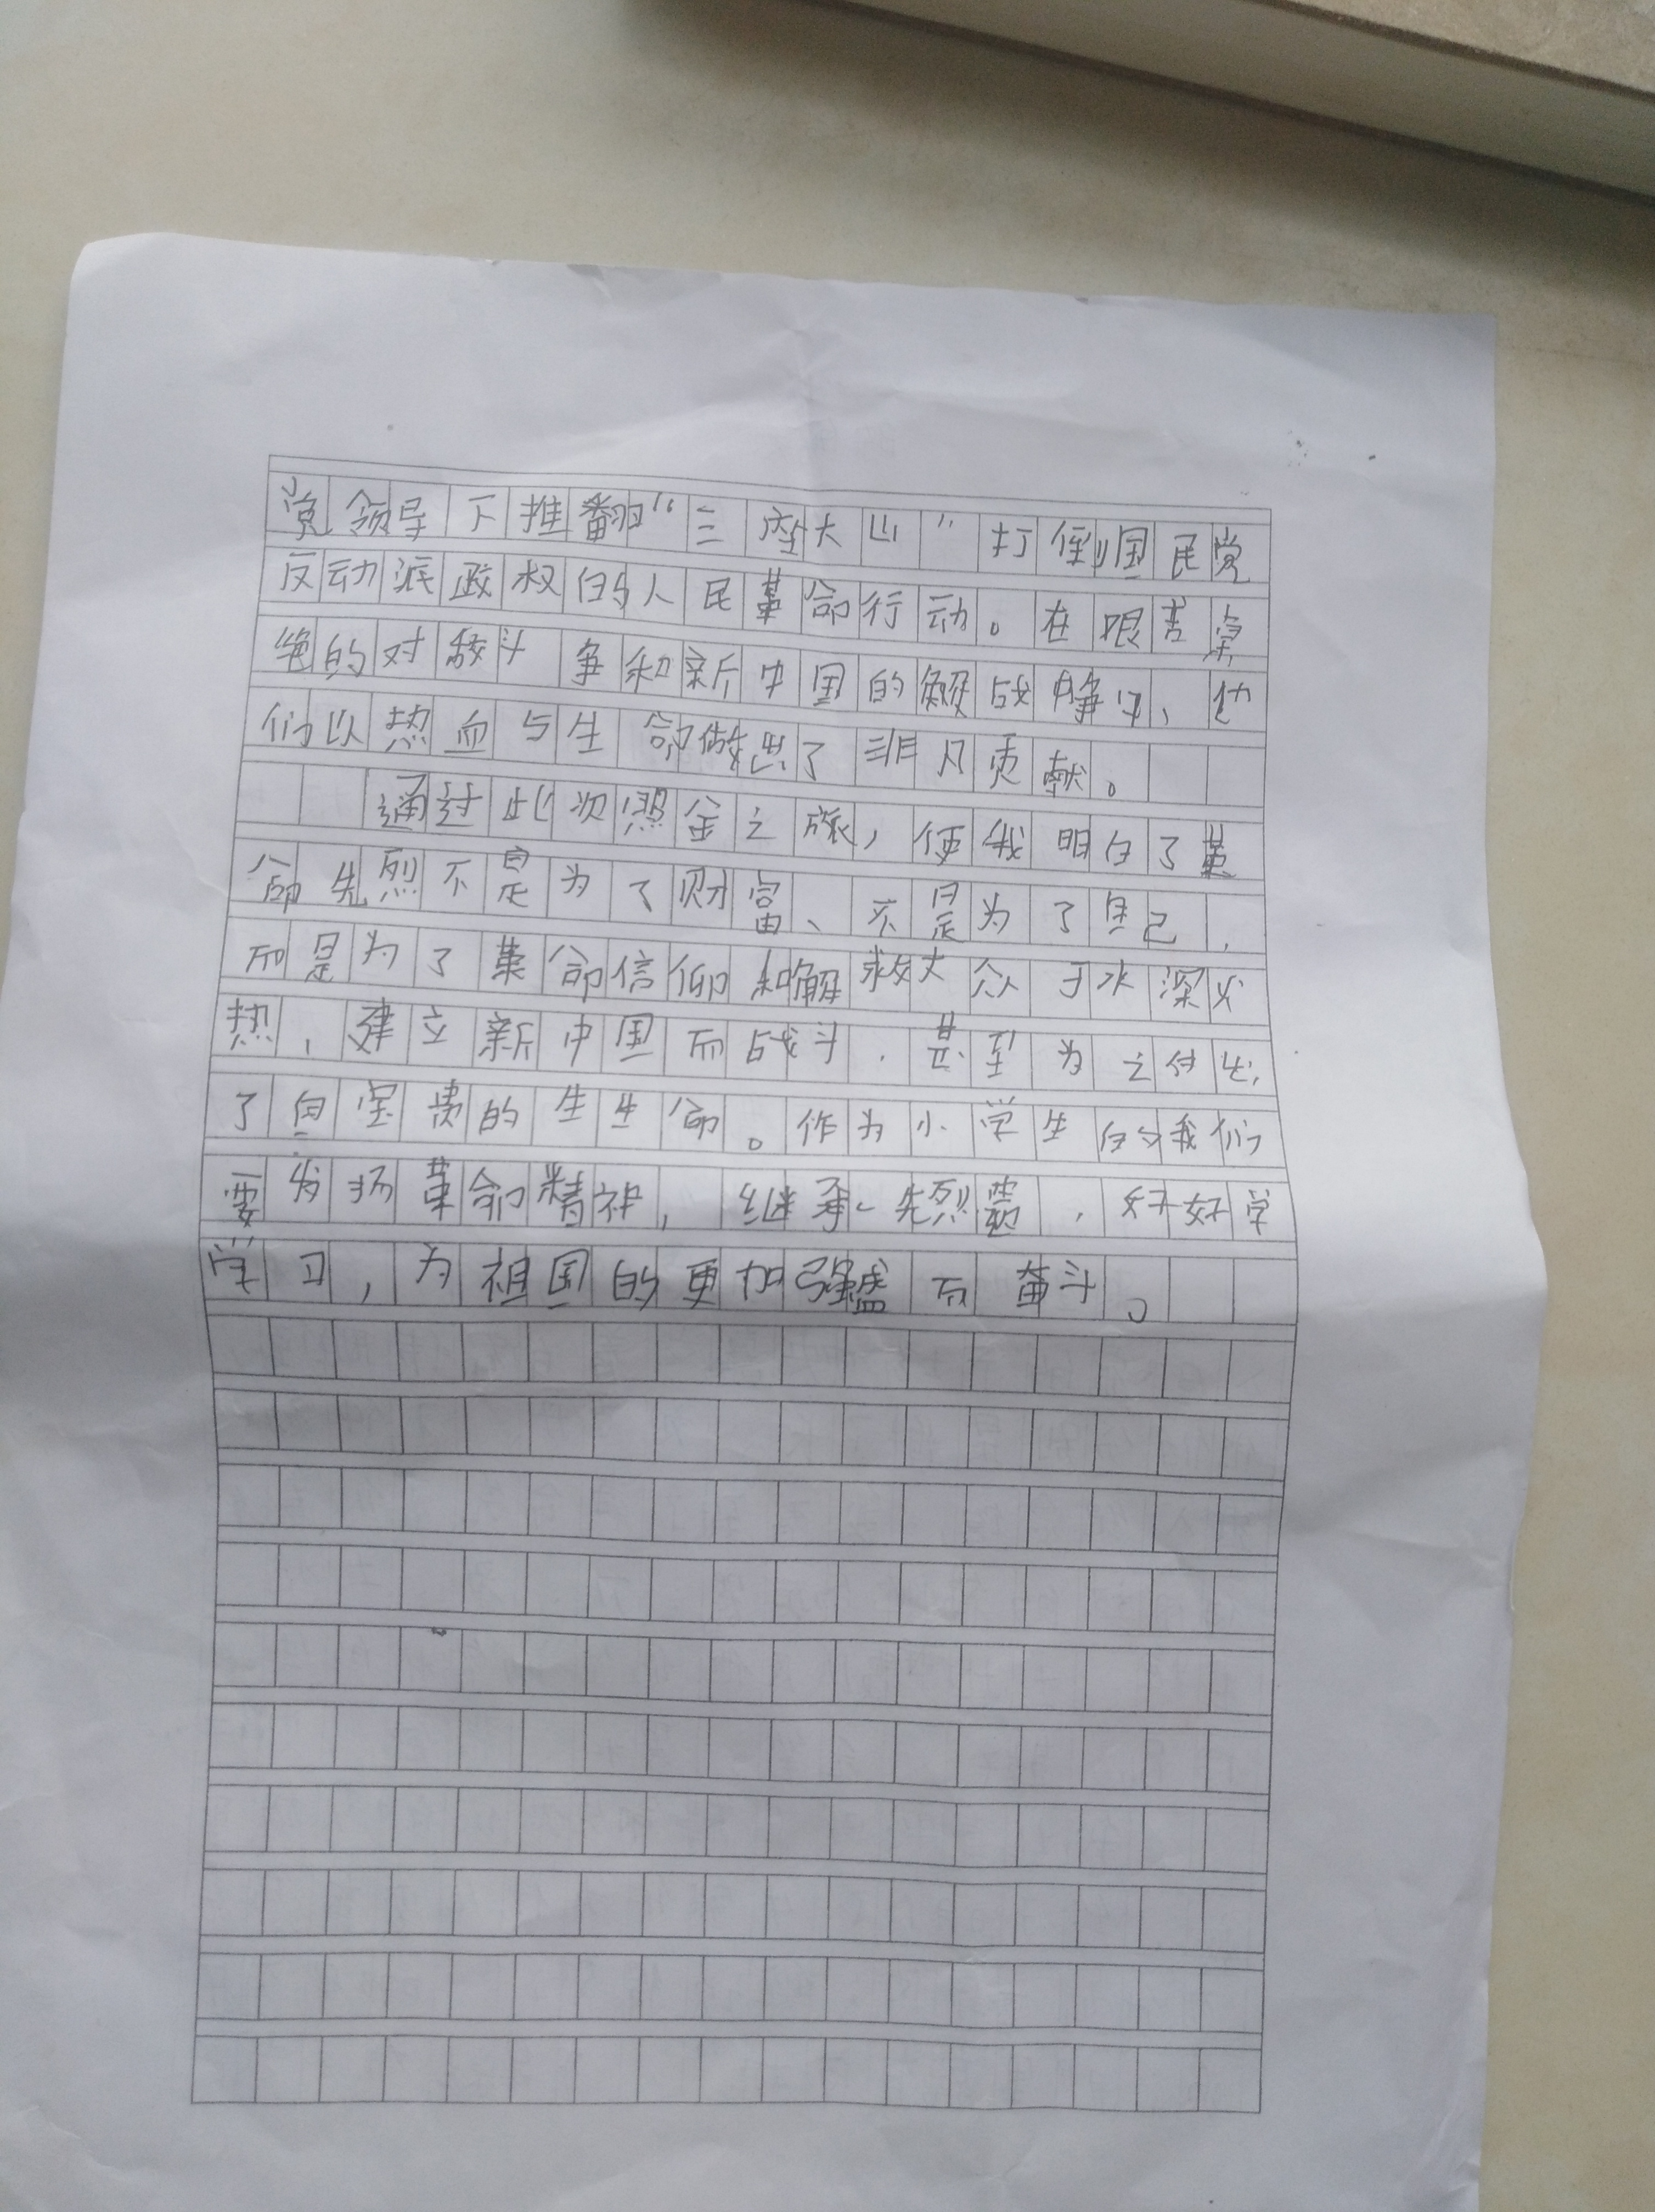 党领导下推翻“三座大山”打倒国民党
反动派政权的人民革命行动。在艰苦卓
绝的对敌斗争和新中国的解战争中,他
们以热血与生命做出了非凡贡献。
通过此次照金之旅,使我明白了革
命先烈不是为了财富、不是为了自己,
而是为了革命信仰和解救大众于水深火
热,建立新中国而战斗,甚至为之付出,
了自宝贵的生生命。作为小学生的我们
要发扬革命精神,继承先烈,好好学
学习,为祖国的更加强盛而奋斗。